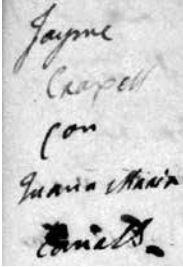 Jayme
Crapell
con
Juana Maria
Canals.